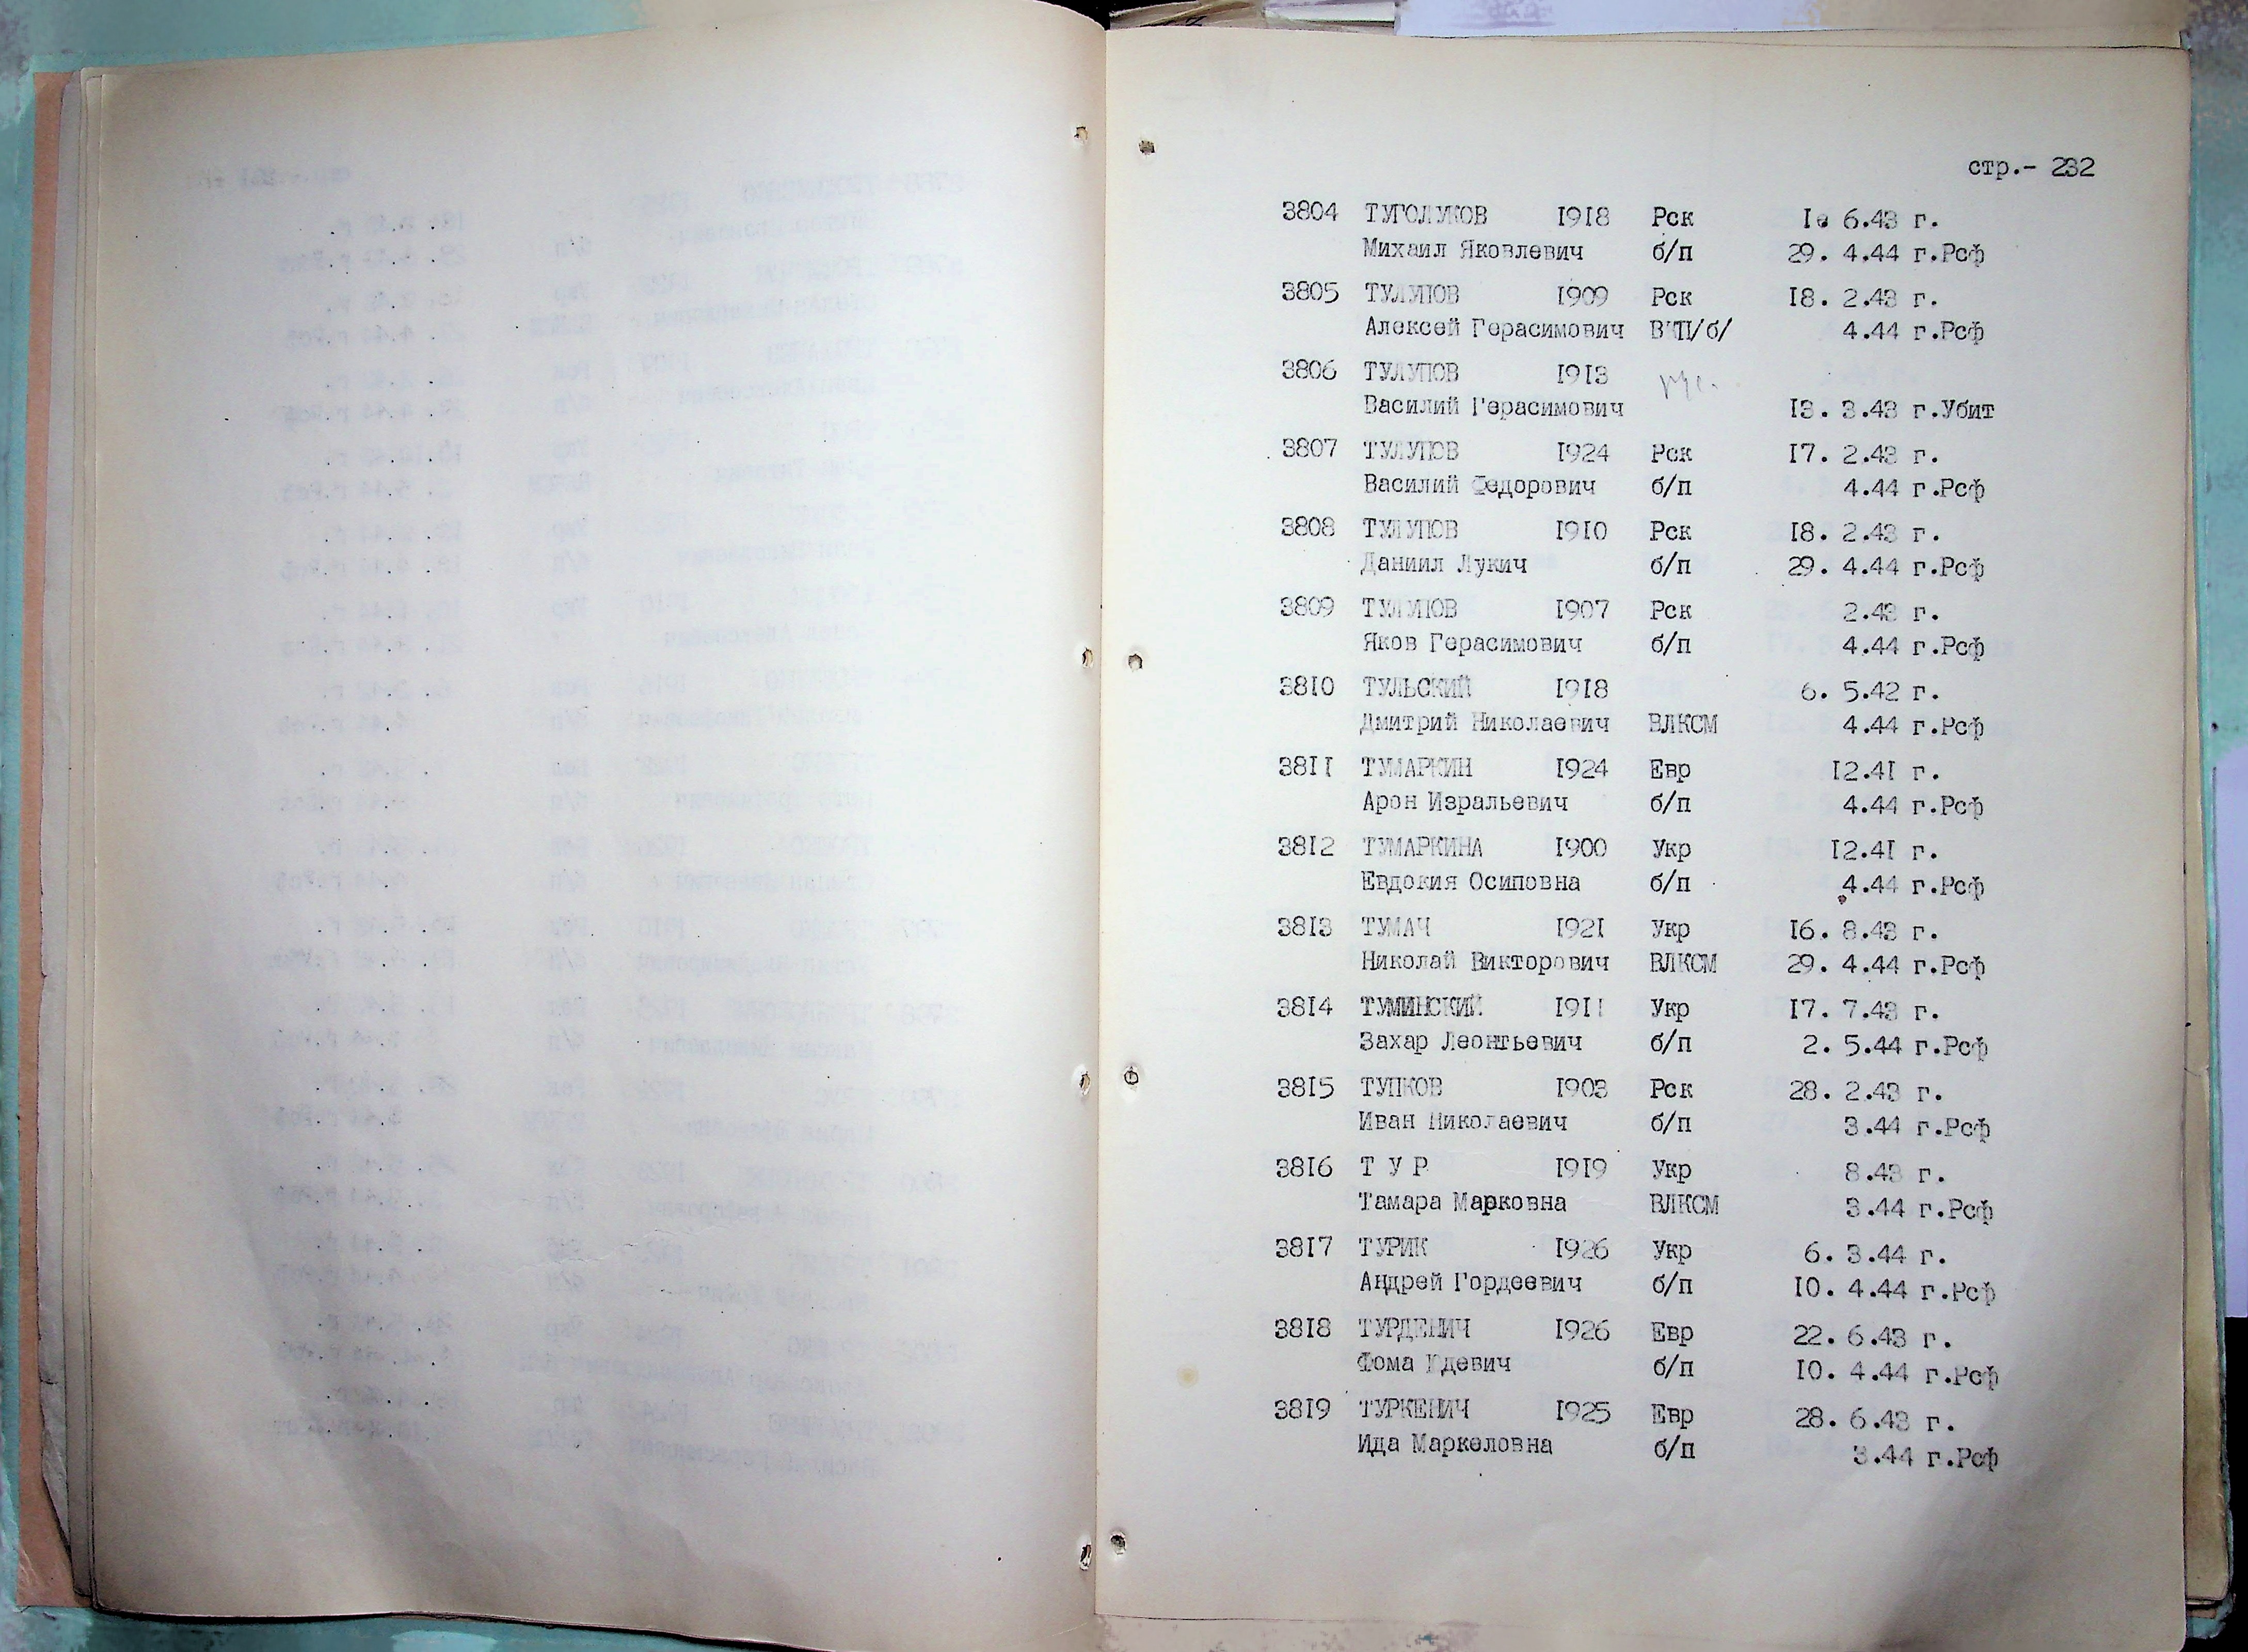 стр.- 232
3804 ТУГОЛУКОВ 1918 Рск 1. 6.43 г.
Михаил Яковлевич б/п 29. 4.44 г.Рсф
3805 ТУЛУПОВ 1909 Рск 18. 2.43 г.
Алексей Герасимович 4.44 г.Рсф
3806 ТУЛУПОВ 1913 рус.
Василий Герасимович 13. 3.43 г.Убит
3807 ТУЛУПОВ 1924 Рск 17. 2.43 г.
Василий Федорович б/п 4.44 г.Рсф
3808 ТУЛУПОВ 1910 Рск 18. 2.43 г.
Даниил Лукич б/п 29. 4.44 г.Рсф
3809 ТУЛУПОВ 1907 Рск 2.43 г.
Яков Герасимович б/п 4.44 г.Рсф
3810 ТУЛЬСКИЙ 1918 6. 5.42 г.
Дмитрий Николаевич ВЛКСМ 4.44 г.Рсф
3811 ТУМАРКИН 1924 Евр 12.41 г.
Арон Изральевич б/п 4.44 г.Рсф
3812 ТУМАРКИНА 1900 Укр 12.41 г.
Евдокия Осиповна б/п 4.44 г.Рсф
3813 ТУМАЧ 1921 Укр 16. 8.43 г.
Николай Викторович ВЛКСМ 29. 4.44 г.Рсф
3814 ТУМИНСКИЙ 1911 Укр 17. 7.43 г.
Захар Леонтьевич б/п 2. 5.44 г.Рсф
3815 ТУПКОВ 1903 Рск 28. 2.43 г.
Иван Николаевич б/п 3.44 г.Рсф
3816 Т У Р 1919 Укр 8.43 г.
Тамара Марковна ВЛКСМ 3.44 г.Рсф
3817 ТУРИК 1926 Укр 6. 3.44 г.
Андрей Гордеевич б/п 10. 4.44 г.Рсф
3818 ТУРДЕНИЧ 1926 Евр 22. 6.43 г.
Фома б/п 10. 4.44 г.Рсф
3819 ТУРКЕНИЧ 1925 Евр 28. 6.43 г.
Ида Маркеловна б/п 3.44 г.Рсф